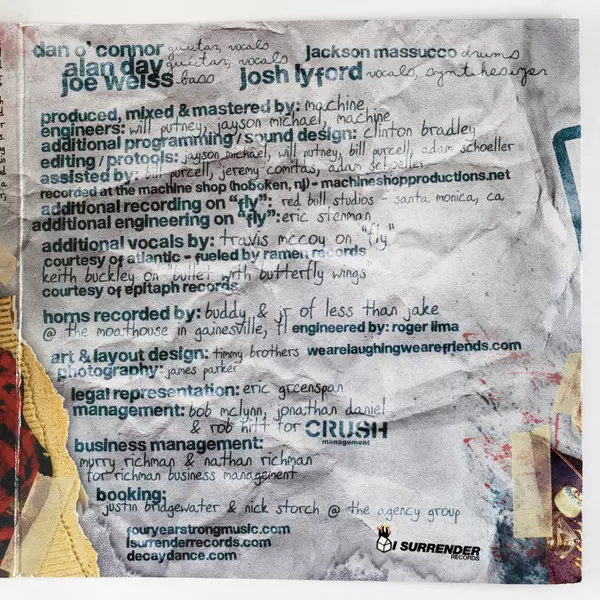 dan o' connor guitar, vocals
jackson massucco drums
alan day guitar, vocals
joe weiss bass
josh lyford vocals, synthesizer
produced, mixed & mastered by: machine
engineers: will putney, jayson michael, machine
additional programming/sound design: clinton bradley
editing/protools: jayson michael, will putney, bill purcell, adam schoeller
assisted by: bill purcell, jeremy comitas, adam schoeller
recorded at the machine shop (hoboken, nj) - machineshopproductions.net
additional recording on "fly": red bull studios - santa monica, ca
additional engineering on "fly": eric stenman
additional vocals by: travis mccoy on "fly"
courtesy of atlantic - fueled by ramen records
keith buckley on "bullet with butterfly wings"
courtesy of epitaph records
horns recorded by: buddy & jr of less than jake
@ the moathouse in gainesville, fl engineered by: roger lima
art & layout design: timmy brothers wearelaughingwearefriends.com
photography: james parker
legal representation: eric greenspan
management: bob mclynn, jonathan daniel
& rob hitt for CRUSH
management
business management:
murry richman & nathan richman
for richman business management
booking:
justin bridgewater & nick storch @ the agency group
fouryearstrongmusic.com
isurrenderrecords.com
decaydance.com
I SURRENDER
RECORDS